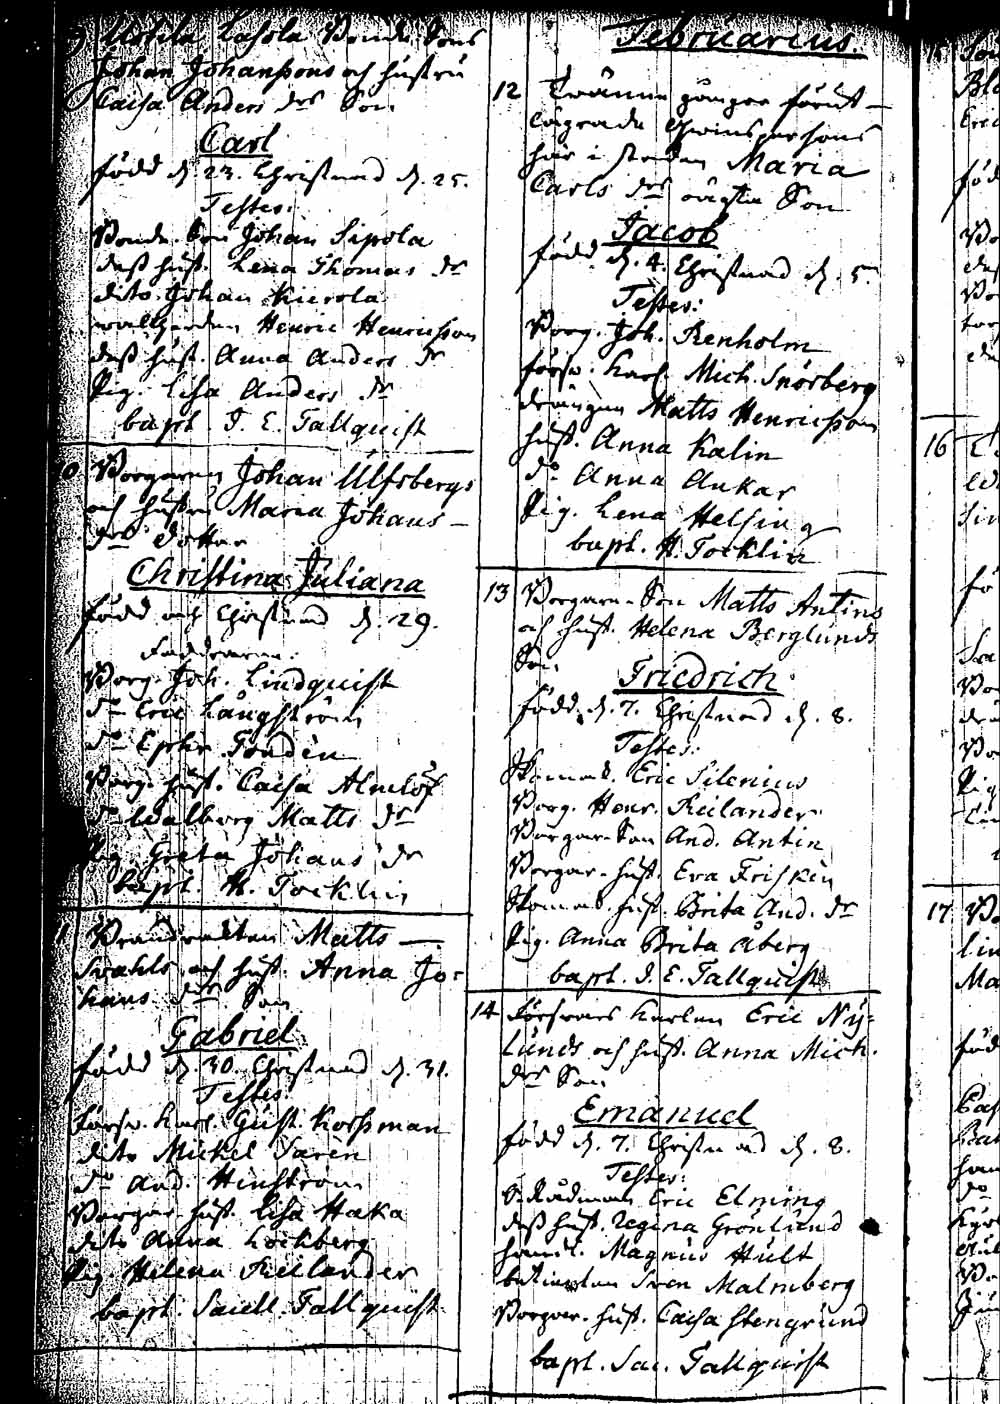 9 Uotila Casola Bonde Sons
Johan Johanssons och hustru
Caisa Anders dr Son
Carl
född d. 23. Christnad d. 25.
Testes:
Bonde Son Johan Sipola
dess hust. Lena Thomas dr
dito Johan Kierola
Henric Henricsson
dess hust. Anna Anders dr
Pig. Lisa Anders dr
bapt. J. E. Tallquist
10 Borgaren Johan Ulfsbergs
och hustru Maria Johans-
dr Dotter
Christina Juliana
född och Christnad d. 29.
Faddrarne:
Borg. Joh. Lindquist
do Eric Långström
do Ephr. Tondén
Borg. hust. Caisa Almlöf
do Walborg Matts dr
Pig. Greta Johans dr
bapt. H. Tocklin
11 Brandvakten Matts
Svahls och hust. Anna Jo-
hans dr Son
Gabriel
född d. 30. Christnad d. 31.
Testes:
Försv. Karl. Gust. Korsman
dito Mickel Sarén
do And. Hinström
Borgar. hust. Lisa Haka
dito Anna Lockberg
Pig. Helena Reilander
bapt. Tallquist
Februarius.
12 Tvänne gånger förut
lägrade Qvinspersons
här i staden Maria
Carls dr oägta Son
Jacob
född d. 4. Christnad d. 5.
Testes:
Borg. Joh. Renholm
försv. Karl. Mich. Snörberg
drängen Matts Henricsson
hust. Anna Kalin
do Anna Ankar
Pig. Lena Helsing
bapt. H. Tocklin
13 Borgare-Son Matts Antins
och hust. Helena Berglunds
Son
Friedrich
född d. 7. Christnad d. 8.
Testes:
Skomak. Eric Silenius
Borg. Henr. Reilander
Borgare-Son And. Antin
Borgar-hust. Eva Friskin
Skomak. hust. Brita And. dr
Pig. Anna Brita Åberg
bapt. J. E. Tallquist
14 Försvars Karlen Eric Ny-
lunds och hust. Anna Mich.
dr Son
Emanuel
född d. 7. Christnad d. 8.
Testes:
Rådman Eric Elming
dess hust. Regina Grönlund
handl. Magnus Hult
betienten Sven Malmberg
Borgar. hust. Caisa Stengrund
bapt. Sac. Tallquist
15
16
17